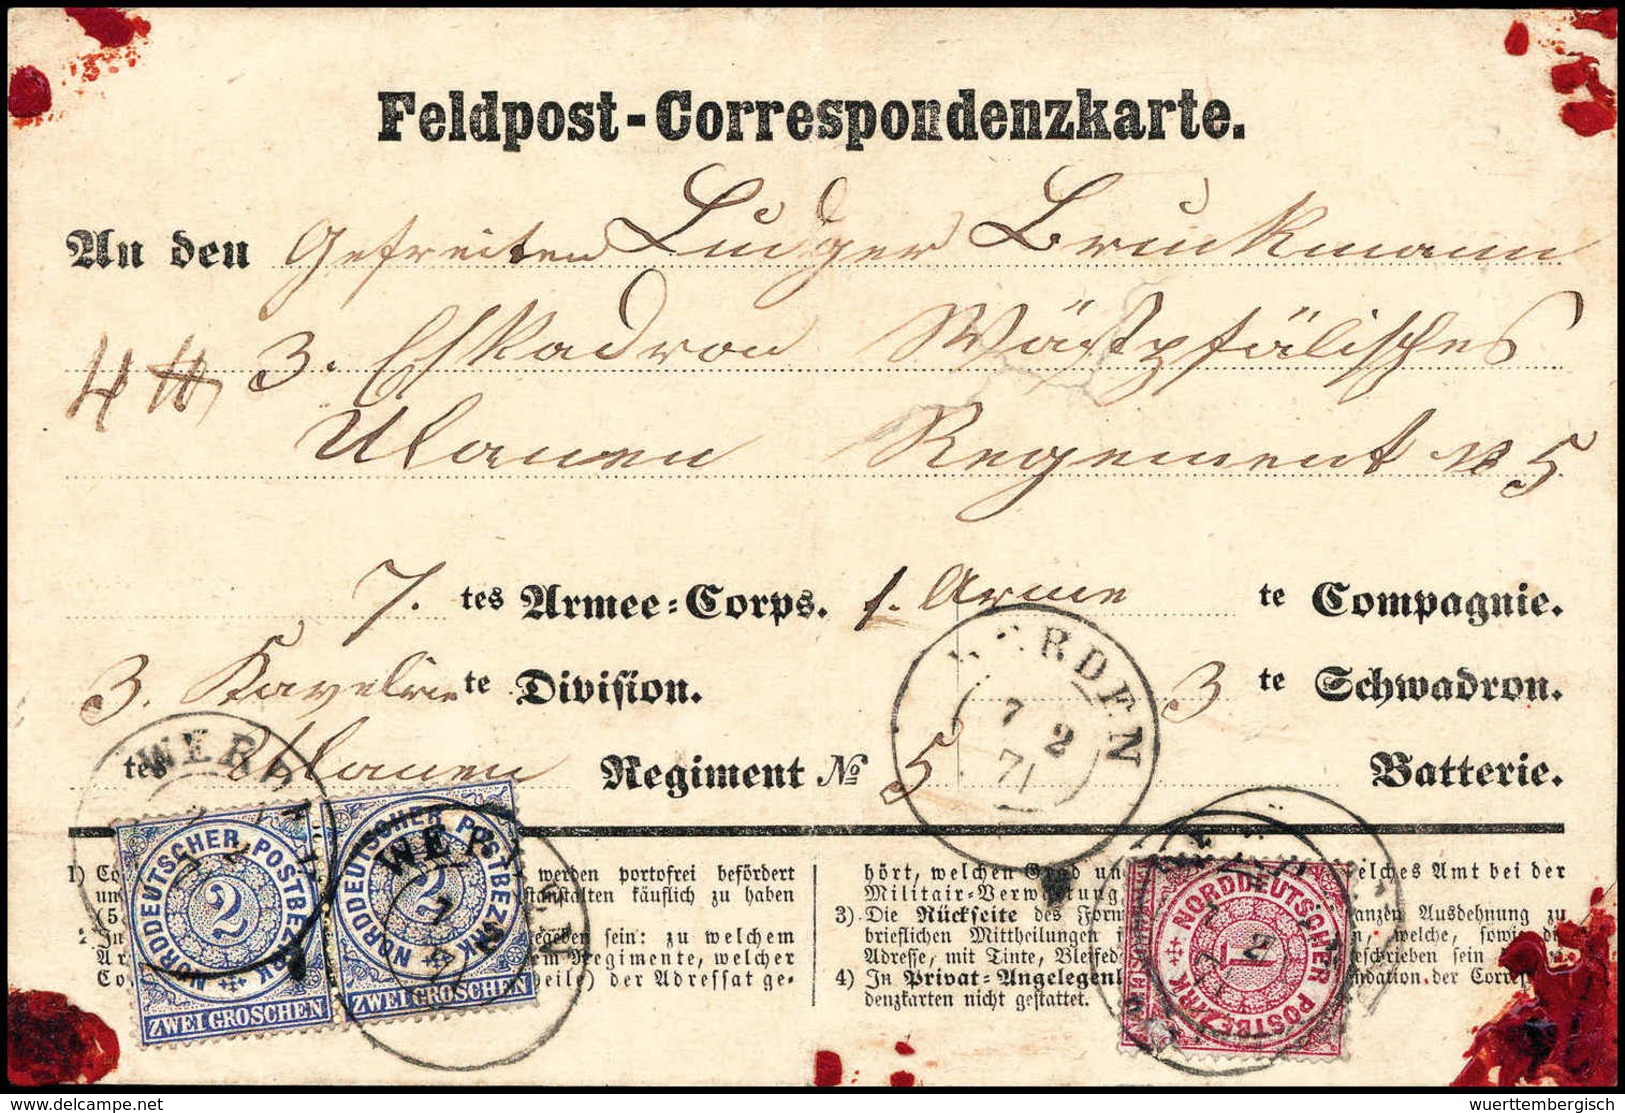 Feldpost-Correspondenzkarte.
An den Gefreiten Ludger Bruckmann
4 3. Eskadron Wästpfälisches
Ulanen Regement No 5
7. tes Armee-Corps. 1. Arme te Compagnie.
3. Kavelrie te Division. 3 te Schwadron.
tes Ulanen Regiment No 5 Batterie.
WERDEN
7 2
71
WERDEN
WERDEN
NORDDEUTSCHER POSTBEZIRK
2
ZWEI GROSCHEN
NORDDEUTSCHER POSTBEZIRK
2
ZWEI GROSCHEN
NORDDEUTSCHER POSTBEZIRK
1
1) Co werden portofrei befördert
un stanstalten käuflich zu haben
(5
2 In gegeben sein: zu welchem
Ar em Regimente, welcher
Co heile) der Adressat ge-
hört, welchen Grad un welches Amt bei der
Militair-Verwaltung
3) Die Rückseite des Form anzen Ausdehnung zu
brieflichen Mittheilungen welche, sowie die
Adresse, mit Tinte, Bleifed schrieben sein
4) In Privat-Angelegen der Corres
denzkarten nicht gestattet.
wuerttembergisch